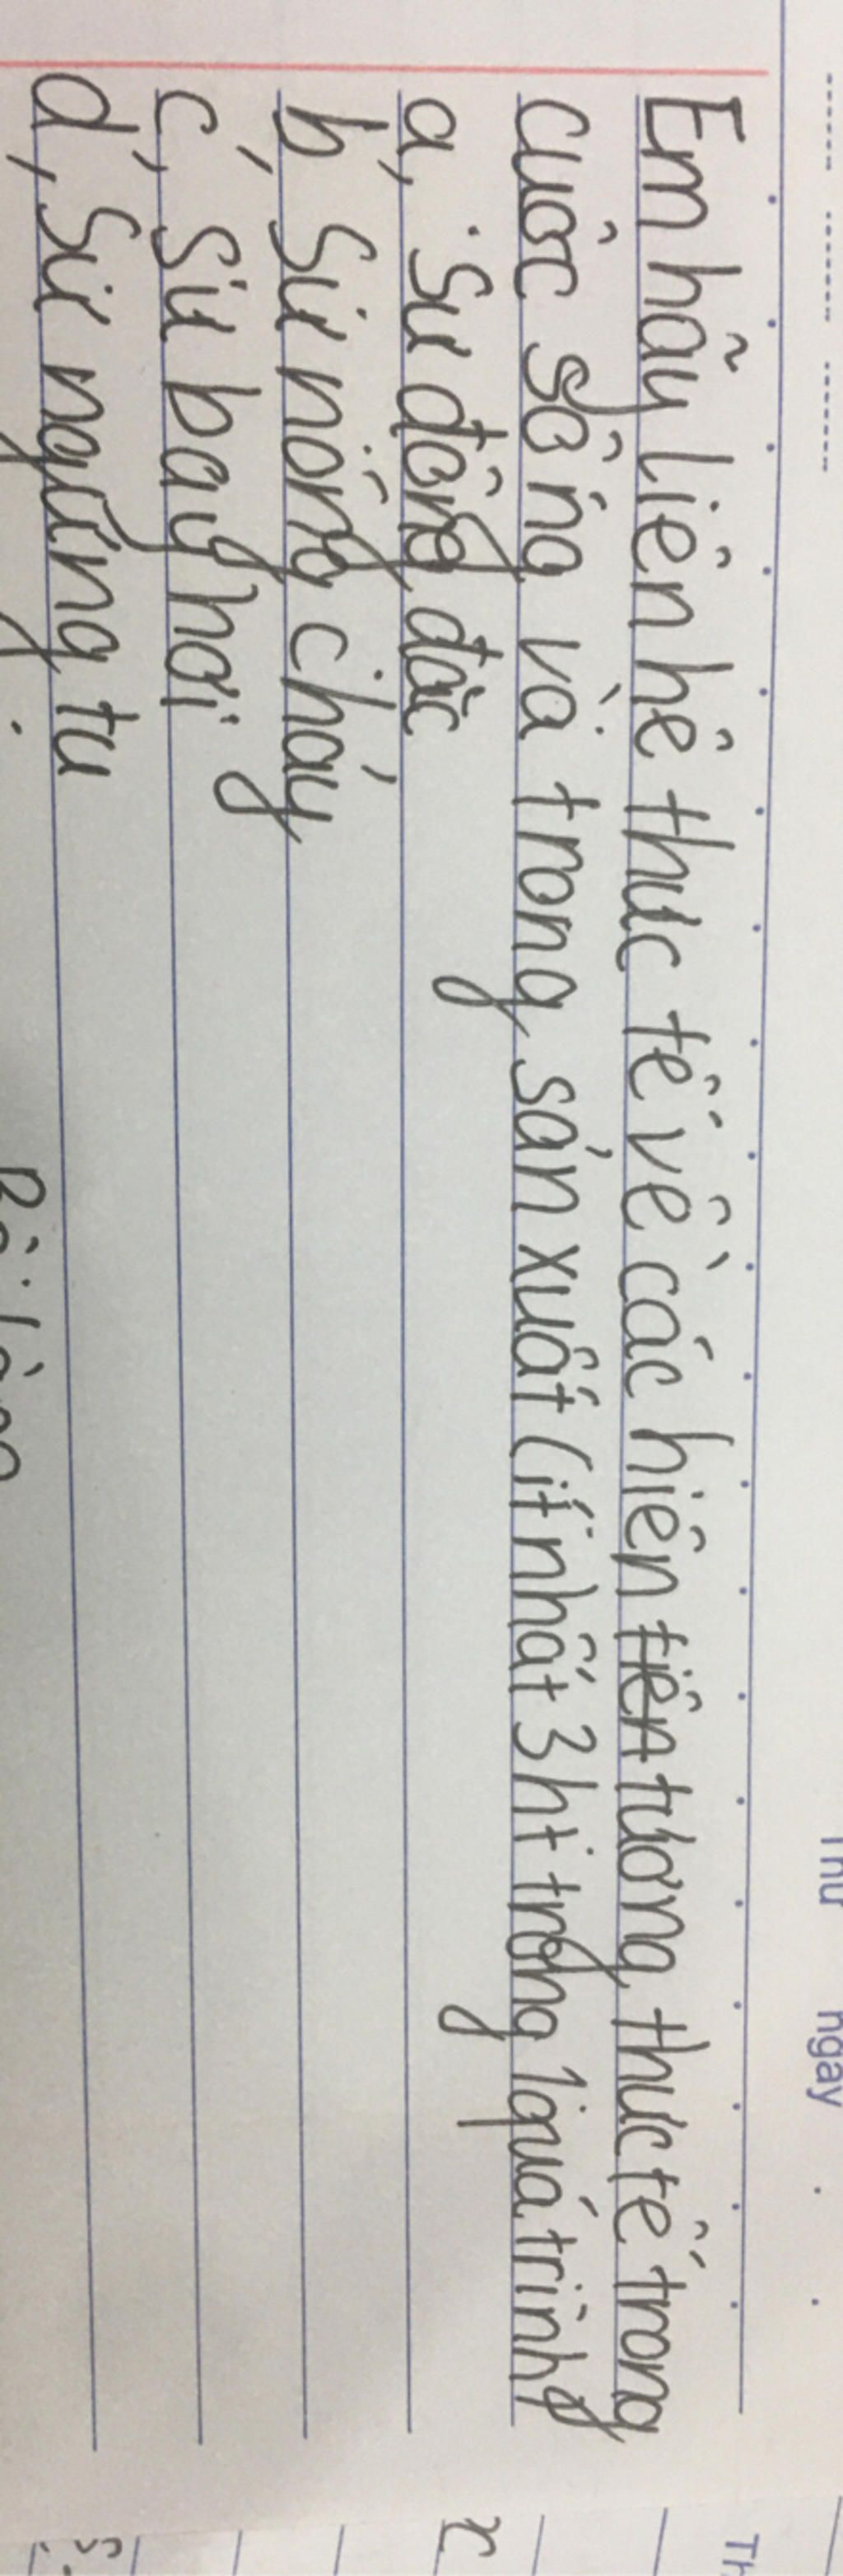 Thứ ngày
Em hãy liên hệ thực tế về các hiện tiên tượng thực tế trong
cuộc sống và trong sản xuất (ít nhất 3 ht trong 1 quá trình)
a, Sự đông đặc
b, Sự nóng chảy
c, Sự bay hơi
d, Sự ngưng tụ
Bài làm